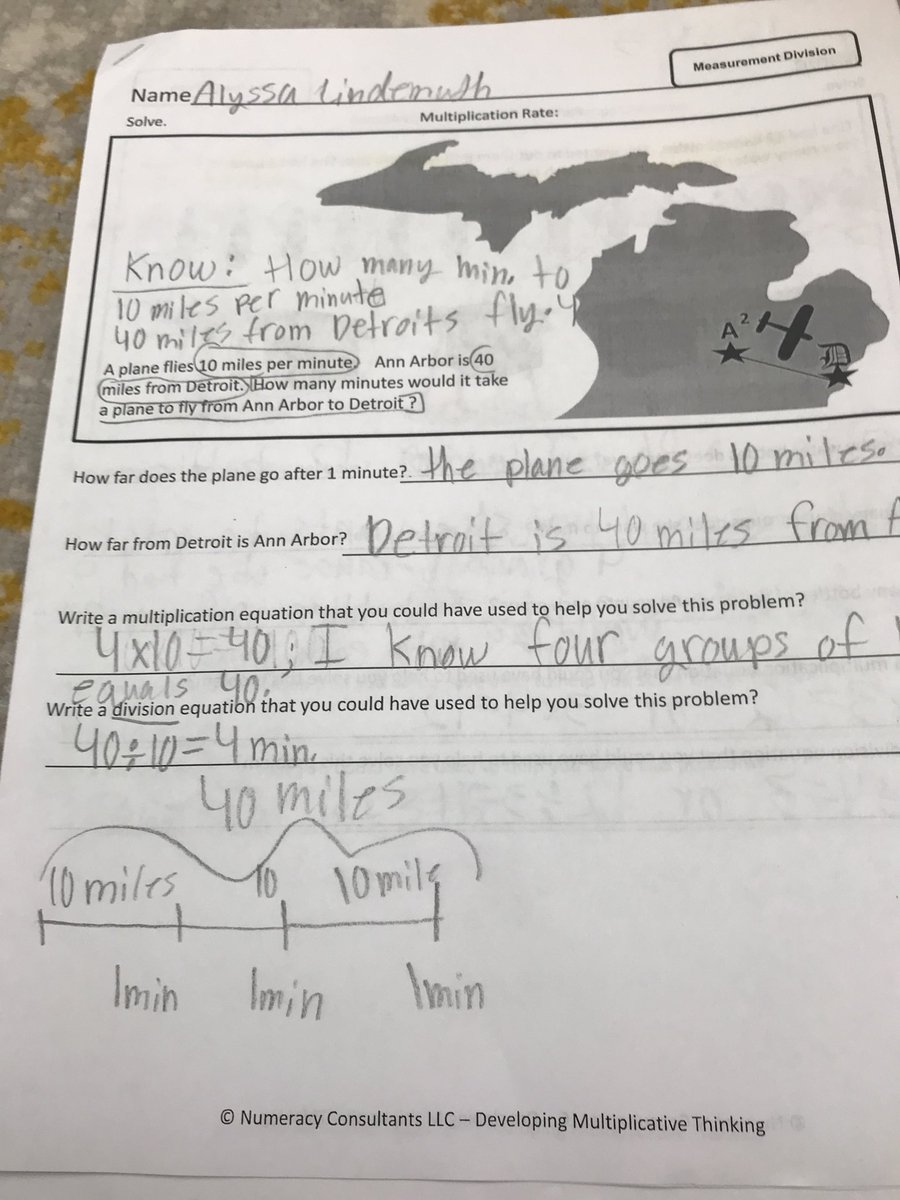 Measurement Division
Name Alyssa Lindemuth
Solve.
Multiplication Rate:
Know: How many min. to
10 miles per minute
40 miles from Detroits fly. 4
A plane flies 10 miles per minute. Ann Arbor is 40
miles from Detroit. How many minutes would it take
a plane to fly from Ann Arbor to Detroit ?
A²
D
How far does the plane go after 1 minute? the plane goes 10 miles.
How far from Detroit is Ann Arbor? Detroit is 40 miles from
Write a multiplication equation that you could have used to help you solve this problem?
4x10=40; I know four groups of
equals 40.
Write a division equation that you could have used to help you solve this problem?
40÷10=4 min.
40 miles
10 miles 10 10 mile
1min 1min 1min
© Numeracy Consultants LLC – Developing Multiplicative Thinking